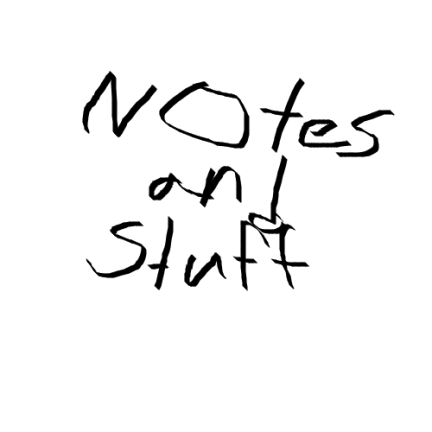 NOtes
and
Stuff